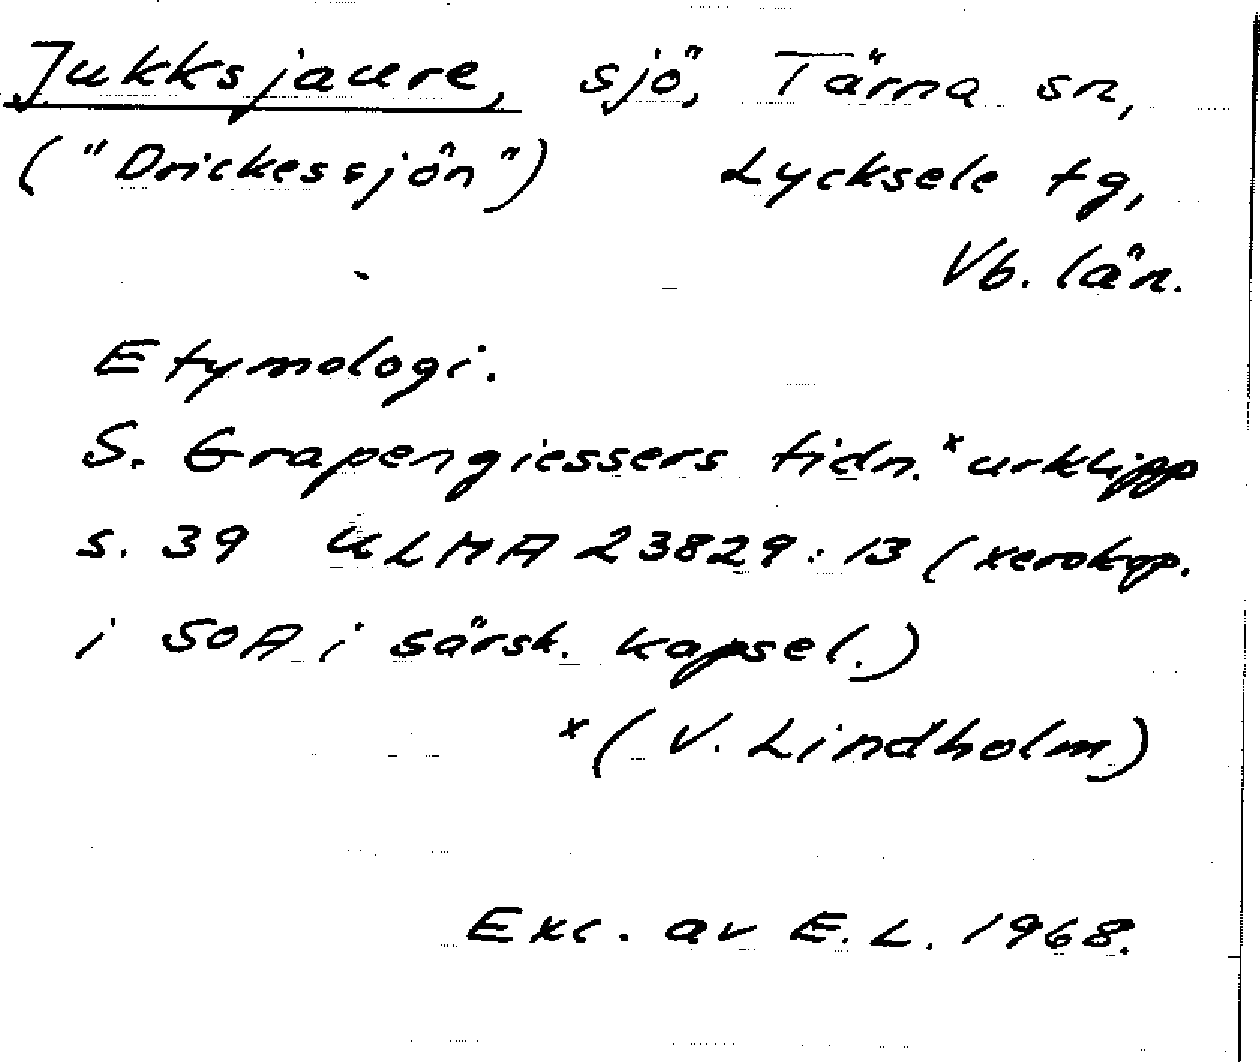 Jukksjaure, sjö, Tärna sn,
("Drickessjön") Lycksele tg,
Vb. län.
Etymologi.
S. Grapengiessers tidn.x urklipp
s. 39 ULMA 23829:13 (xerokop.
i SOA i särsk. kapsel.)
x (V. Lindholm)
Exc. av E. L. 1968.